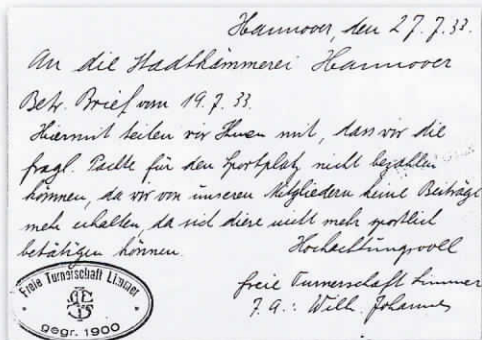 Hannover, den 27.7.33.
An die Stadtkämmerei Hannover
Betr. Brief vom 19.7.33.
Hiermit teilen wir Ihnen mit, dass wir die
fragl. Pacht für den Sportplatz nicht bezahlen
können, da wir von unseren Mitgliedern keine Beiträge
mehr erhalten, da sich diese nicht mehr sportlich
betätigen können.
Hochachtungsvoll
Freie Turnerschaft Limmer
J. A.: Wilh. Johannes
Freie Turnerschaft Limmer
gegr. 1900